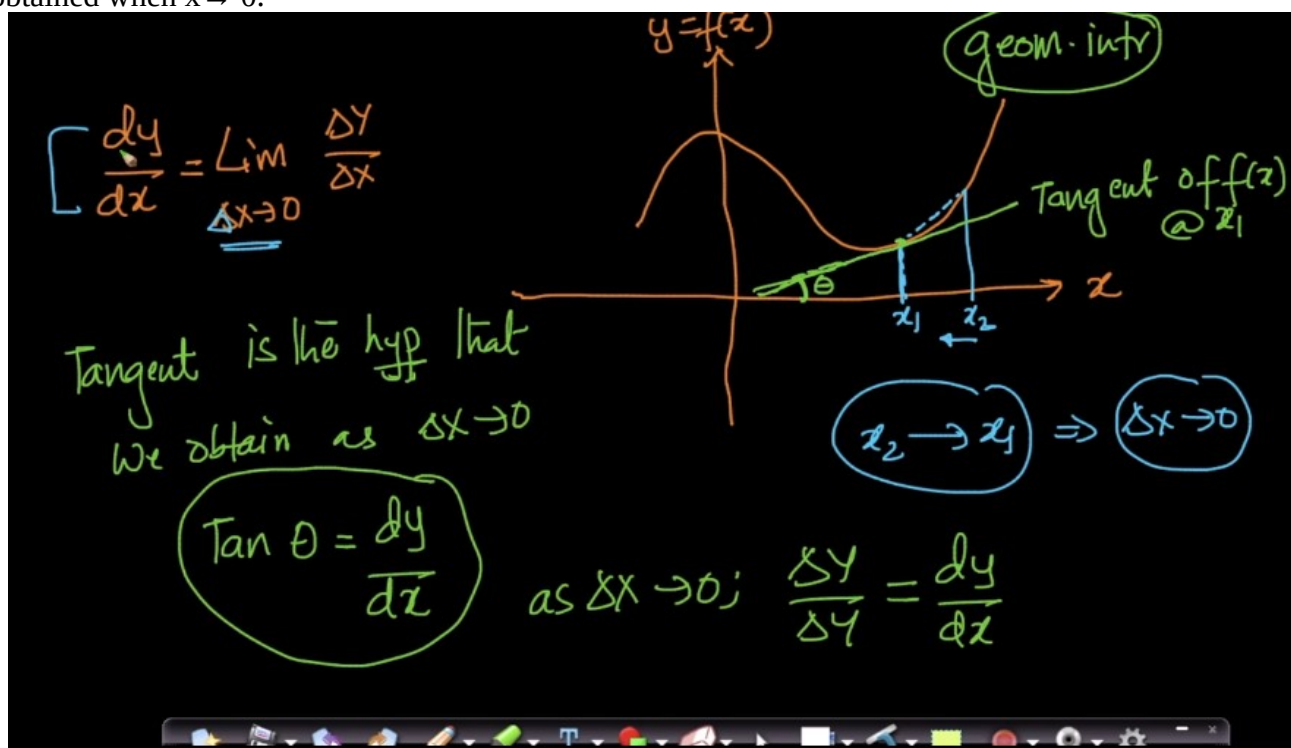 obtained when x → 0.
y = f(x)
geom. intr
dy/dx = Lim Δx→0 ΔY/ΔX
Tangent of f(x)
@ x₁
θ
x
x₁ x₂
Tangent is the hyp that
We obtain as ΔX→0
x₂ → x₁ ⇒ ΔX→0
Tan θ = dy/dx
as ΔX→0; ΔY/ΔY = dy/dx
T